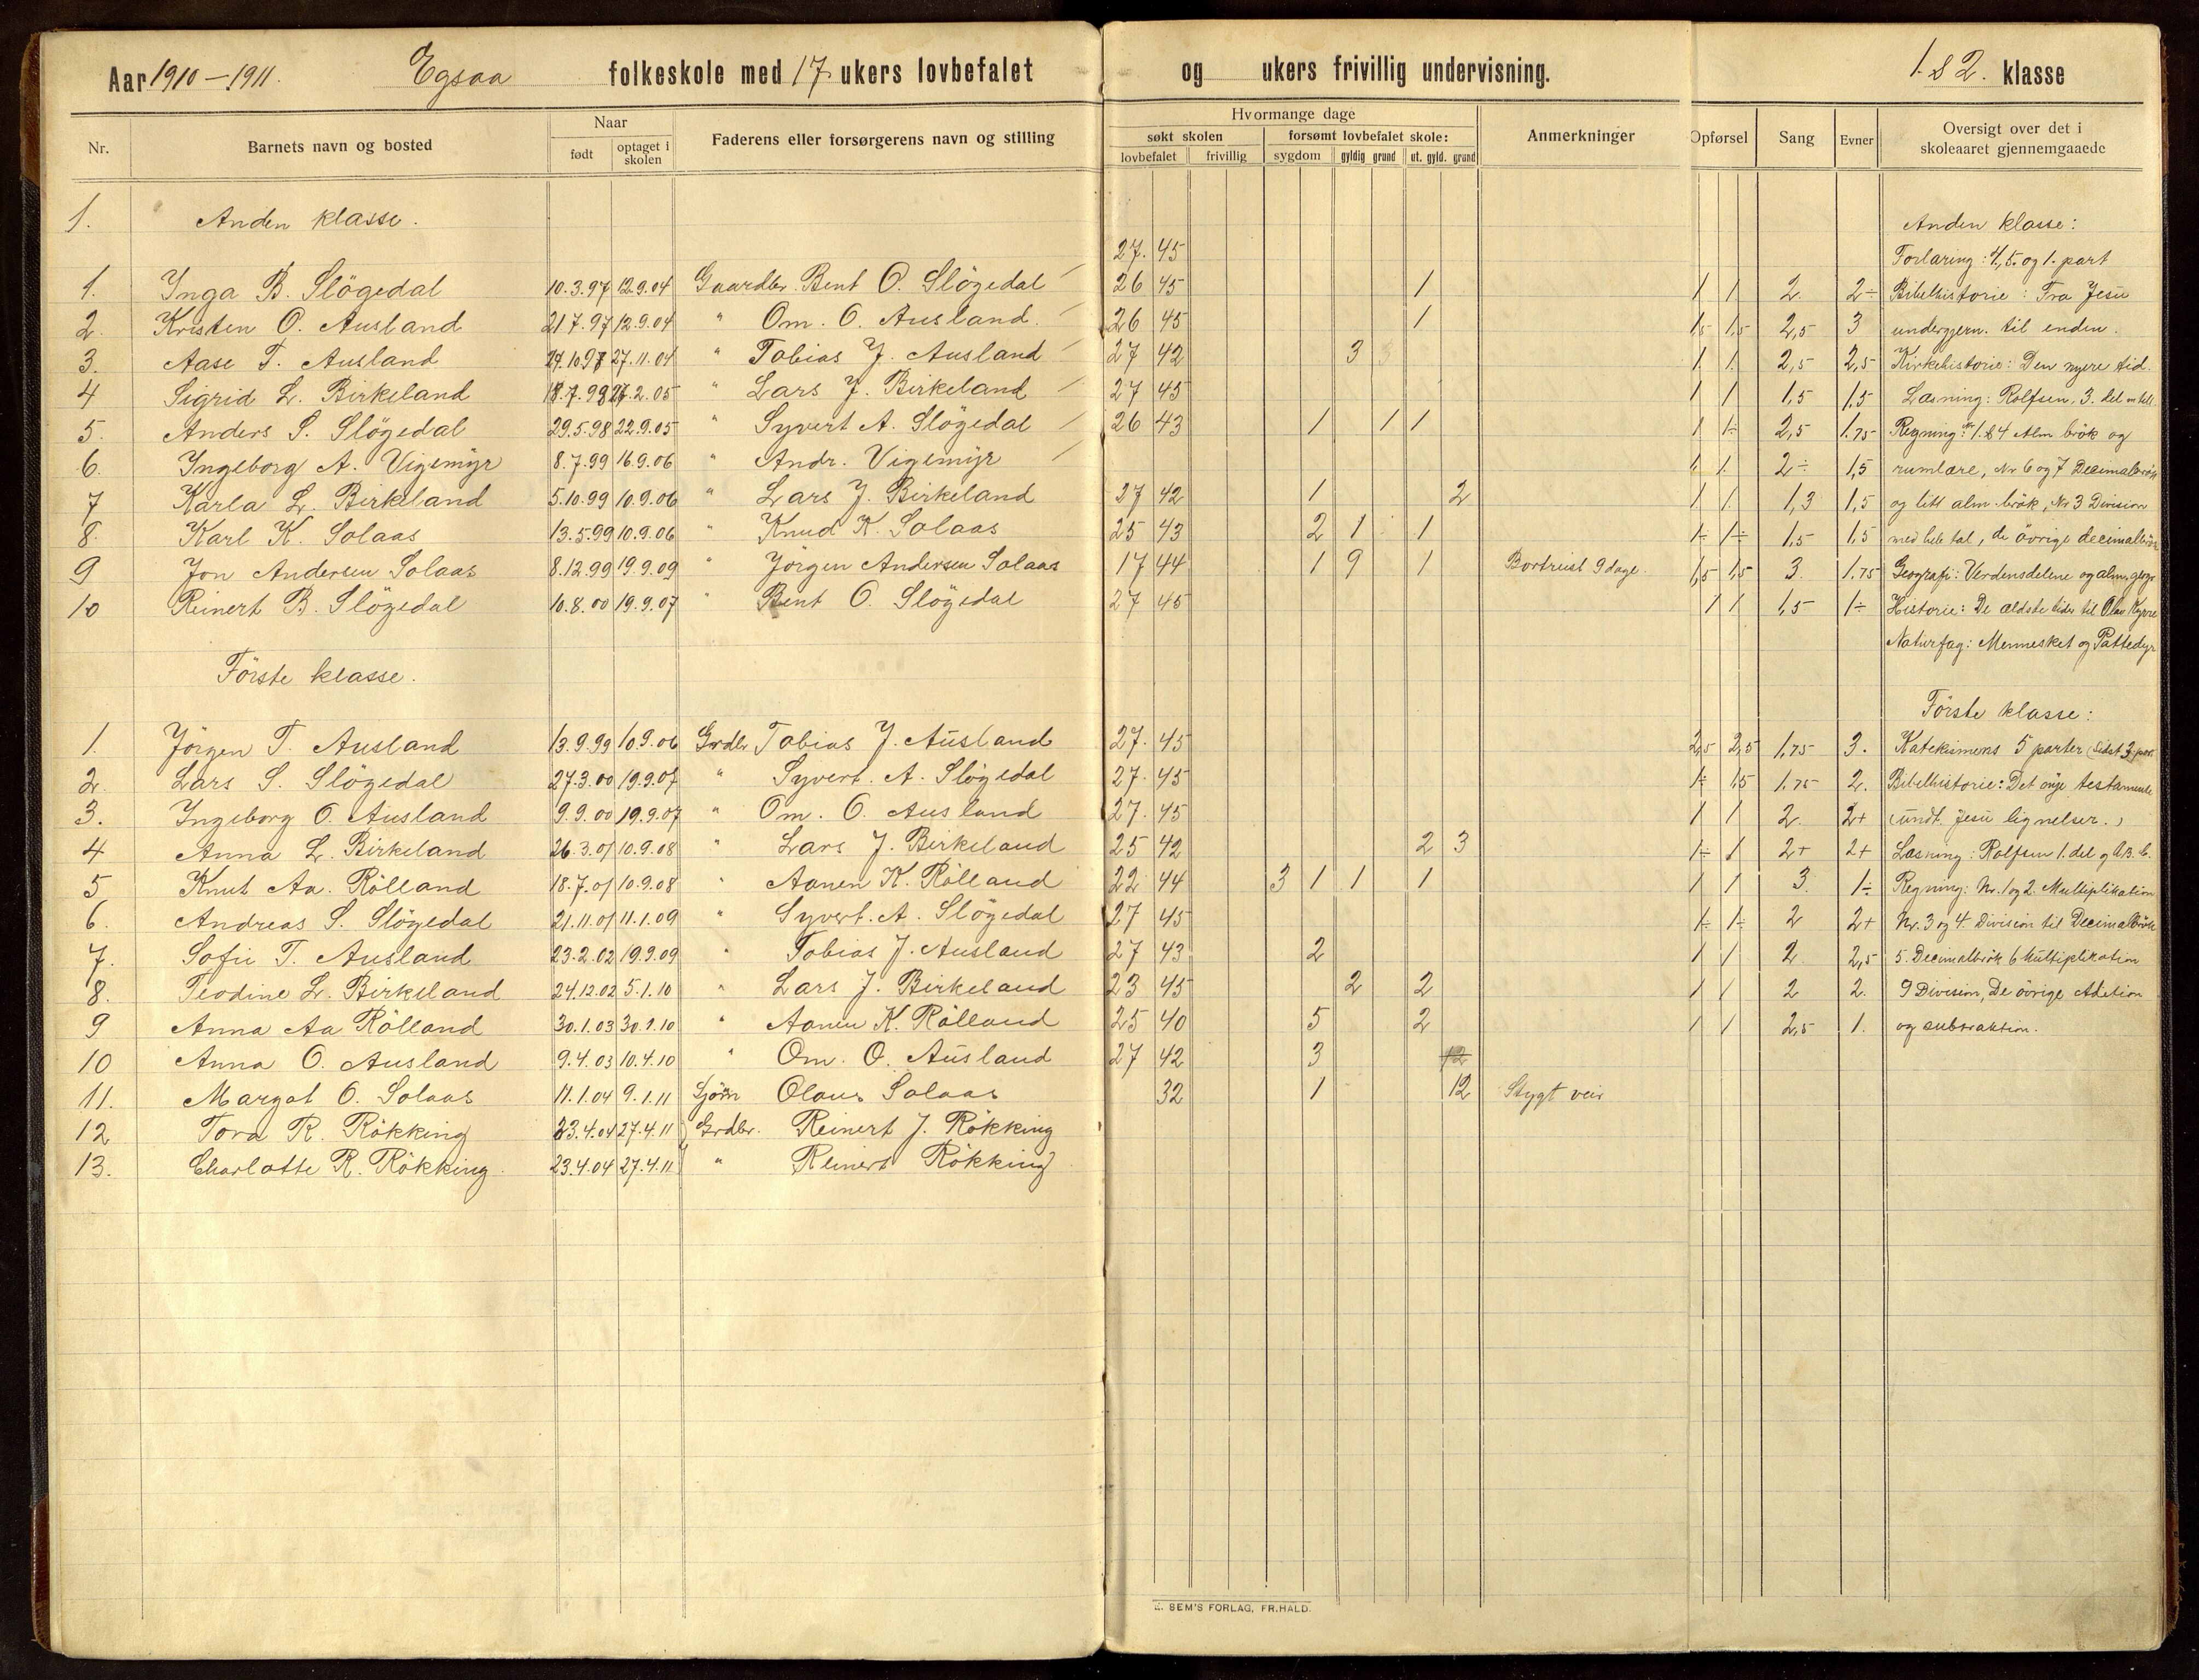 Aar 1910–1911. Egsaa folkeskole med 17 ukers lovbefalet og ukers frivillig undervisning. 1. & 2. klasse
Nr. Barnets navn og bosted Naar født optaget i skolen Faderens eller forsørgerens navn og stilling Hvormange dage søkt skolen lovbefalet frivillig forsømt lovbefalet skole: sygdom gyldig grund ut. gyld. grund Anmerkninger Opførsel Sang Evner Oversigt over det i skoleaaret gjennemgaaede
1. Anden klasse. Anden klasse:
27. 45 Forlaring: 4, 5. og 1. part
1. Inga B. Slögedal 10.3.97 12.9.04 Gaardbr. Bent O. Slögedal 26 45 1 1 1 2 2÷ Bibelhistorie: Fra Jesu
2. Kristen O. Ausland 21.7.97 12.9.04 " Om. O. Ausland. 26 45 1 1,5 1,5 2,5 3 undergjern. til enden.
3. Aase T. Ausland 27.11.04 " Tobias J. Ausland 27 42 3 1. 1. 2,5 2,5 Kirkehistorie: Den nyere tid.
4 Sigrid L. Birkeland 18.7.98 27.2.05 " Lars J. Birkeland 27 45 1 1 1,5 1,5 Læsning: Rolfsen, 3. del
5. Anders S. Slögedal 29.5.98 22.9.05 " Syvert A. Slögedal 26 43 1 1 1 1 1÷ 2,5 1.75 Regning: Nr 1. & 4 Alm brök og
6. Ingeborg A. Vigemyr 8.7.99 16.9.06 " Andr. Vigemyr 1 1. 2÷ 1,5 rumlære, Nr 6 og 7 Decimalbrök
7 Karla L. Birkeland 5.10.99 10.9.06 " Lars J. Birkeland 27 42 1 2 1 1. 1,3 1,5 og litt alm. brök, Nr 3 Division
8. Karl K. Solaas 13.5.99 10.9.06 " Knud K. Solaas 25 43 2 1 1 1÷ 1÷ 1,5 1,5 med hele tal, de övrige decimalbrök
9 Jon Andersen Solaas 8.12.99 19.9.09 " Jörgen Andersen Solaas 17 44 1 9 1 Bortreist 9 dage. 1,5 1,5 3. 1.75 Geografi: Verdensdelene og alm. geogr
10 Reinert B. Slögedal 10.8.00 19.9.07 " Bent O. Slögedal 27 45 1 1 1,5 1÷ Historie: De ældste tider til Olav Kyrre
Naturfag: Mennesket og Pattedyr
Förste klasse. Förste klasse:
1. Jörgen T. Ausland 13.9.99 10.9.06 Grdbr Tobias J. Ausland 27. 45 2,5 2,5 1,75 3. Katekismens 5 parter (Sidst 3 part
2. Lars S. Slögedal 27.3.00 19.9.07 " Syvert. A. Slögedal 27. 45 1÷ 1,5 1.75 2. Bibelhistorie: Det nye testamente
3. Ingeborg O. Ausland 9.9.00 19.9.07 " Om. O. Ausland 27. 45 1 1 2 2+ (undt. Jesu lignelser.)
4 Anna L. Birkeland 26.3.01 10.9.08 " Lars J. Birkeland 25 42 2 3 1÷ 1 2+ 2+ Læsning: Rolfsen 1. del
5 Knut Aa. Rölland 18.7.01 10.9.08 " Aanen K. Rölland 22 44 3 1 1 1 1 1 3. 1÷ Regning: Nr. 1 og 2. Multiplikation
6. Andreas S. Slögedal 21.11.01 11.1.09 " Syvert. A. Slögedal 27 45 1÷ 1÷ 2 2+ Nr. 3 og 4. Division til Decimalbrök
7. Sofie T. Ausland 23.2.02 19.9.09 " Tobias J. Ausland 27 43 2 1 1 2 2,5 5. Decimalbrök 6 Multiplikation
8. Teodine L. Birkeland 24.12.02 5.1.10 " Lars J. Birkeland 23 45 2 2 1 1 2 2. 9 Division, De övrige Adition
9 Anna Aa Rölland 30.1.03 30.1.10 " Aanen K. Rölland 25 40 5 2 1 1 2,5 1. og subtraktion.
10 Anna O. Ausland 9.4.03 10.4.10 " Om. O. Ausland 27 42 3 12
11. Margat O. Solaas 11.1.04 9.1.11 Sjöm Olaus Solaas 32 1 12 Stygt veir
12 Tora R. Rökking 23.4.04 27.4.11 Grdbr. Reinert J. Rökking
13. Charlotte R. Rökking 23.4.04 27.4.11 " Reinert Rökking
E. SEM'S FORLAG, FR.HALD.